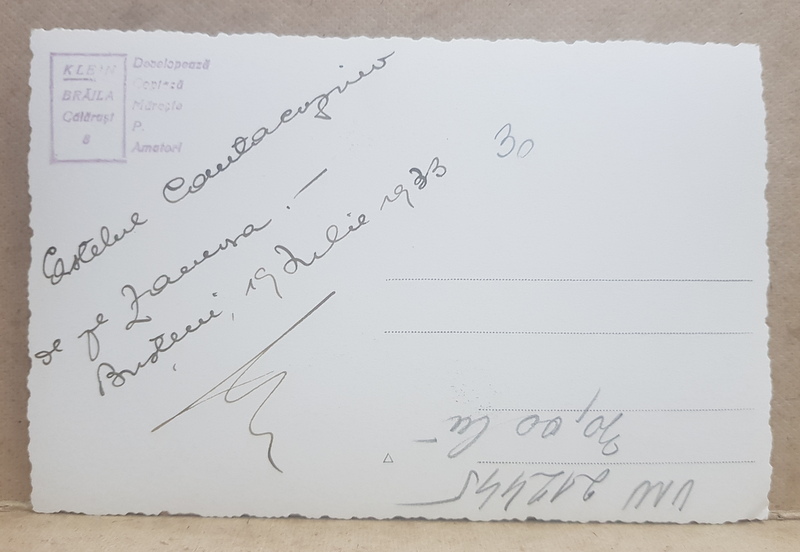 KLEIN
BRĂILA
Călărași
8
Developează
Copiază
Mărește
P.
Amatori
Castelul Cantacuzino
de pe Zamora. —
Bușteni, 19 Iulie 1933
30
70,00 lei
212445